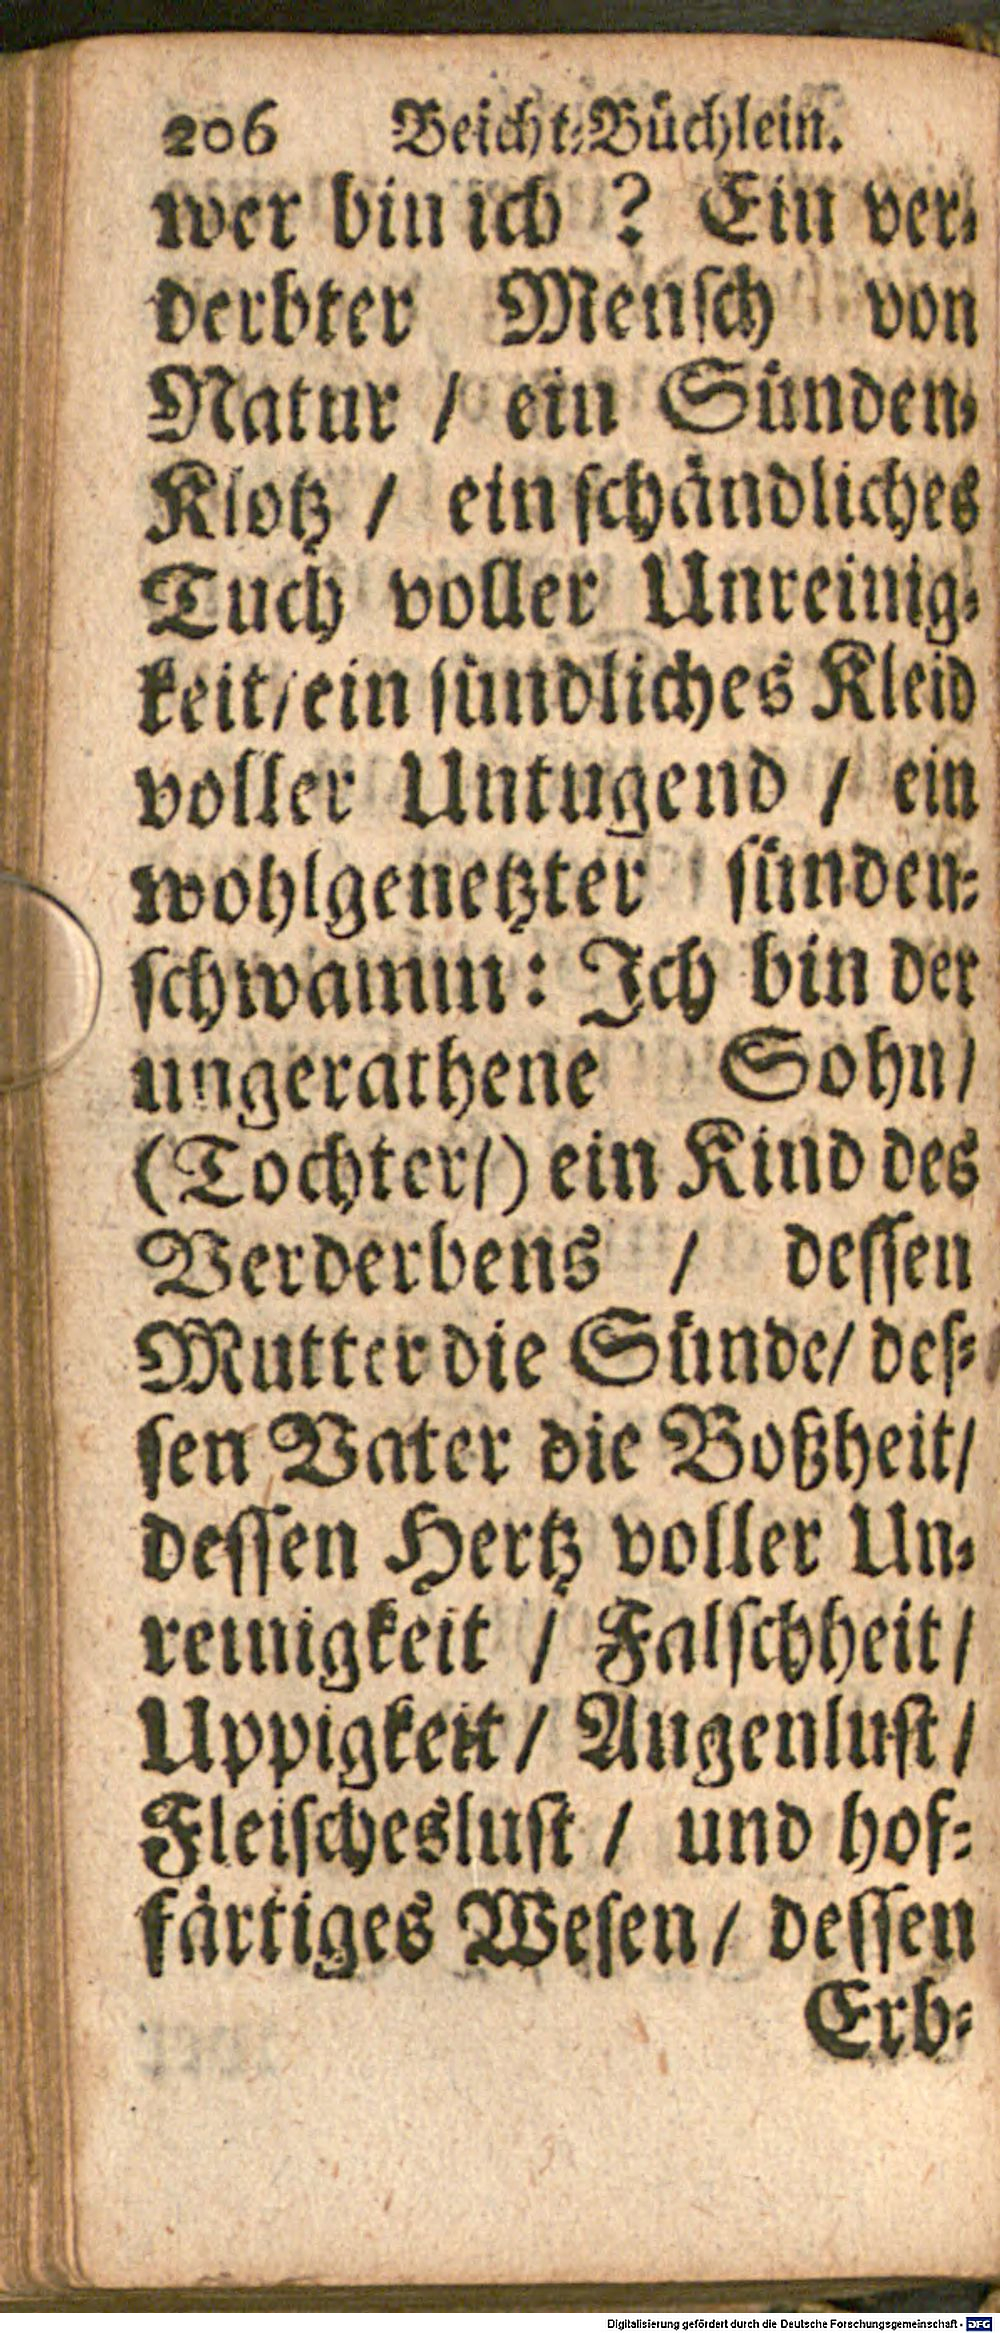 206 Beicht-Büchlein.
wer bin ich ? Ein ver-
derbter Mensch von
Natur / ein Sünden-
Klotz / ein schändliches
Tuch voller Unreinig-
keit/ein sündliches Kleid
voller Untugend / ein
wohlgenetzter sünden-
schwamm: Ich bin der
ungerathene Sohn/
(Tochter/) ein Kind des
Verderbens / dessen
Mutter die Sünde/ des-
sen Vater die Boßheit/
dessen Hertz voller Un-
reinigkeit / Falschheit/
Uppigkeit / Augenlust /
Fleischeslust / und hof-
färtiges Wesen / dessen
Erb-
Digitalisierung gefördert durch die Deutsche Forschungsgemeinschaft - DFG